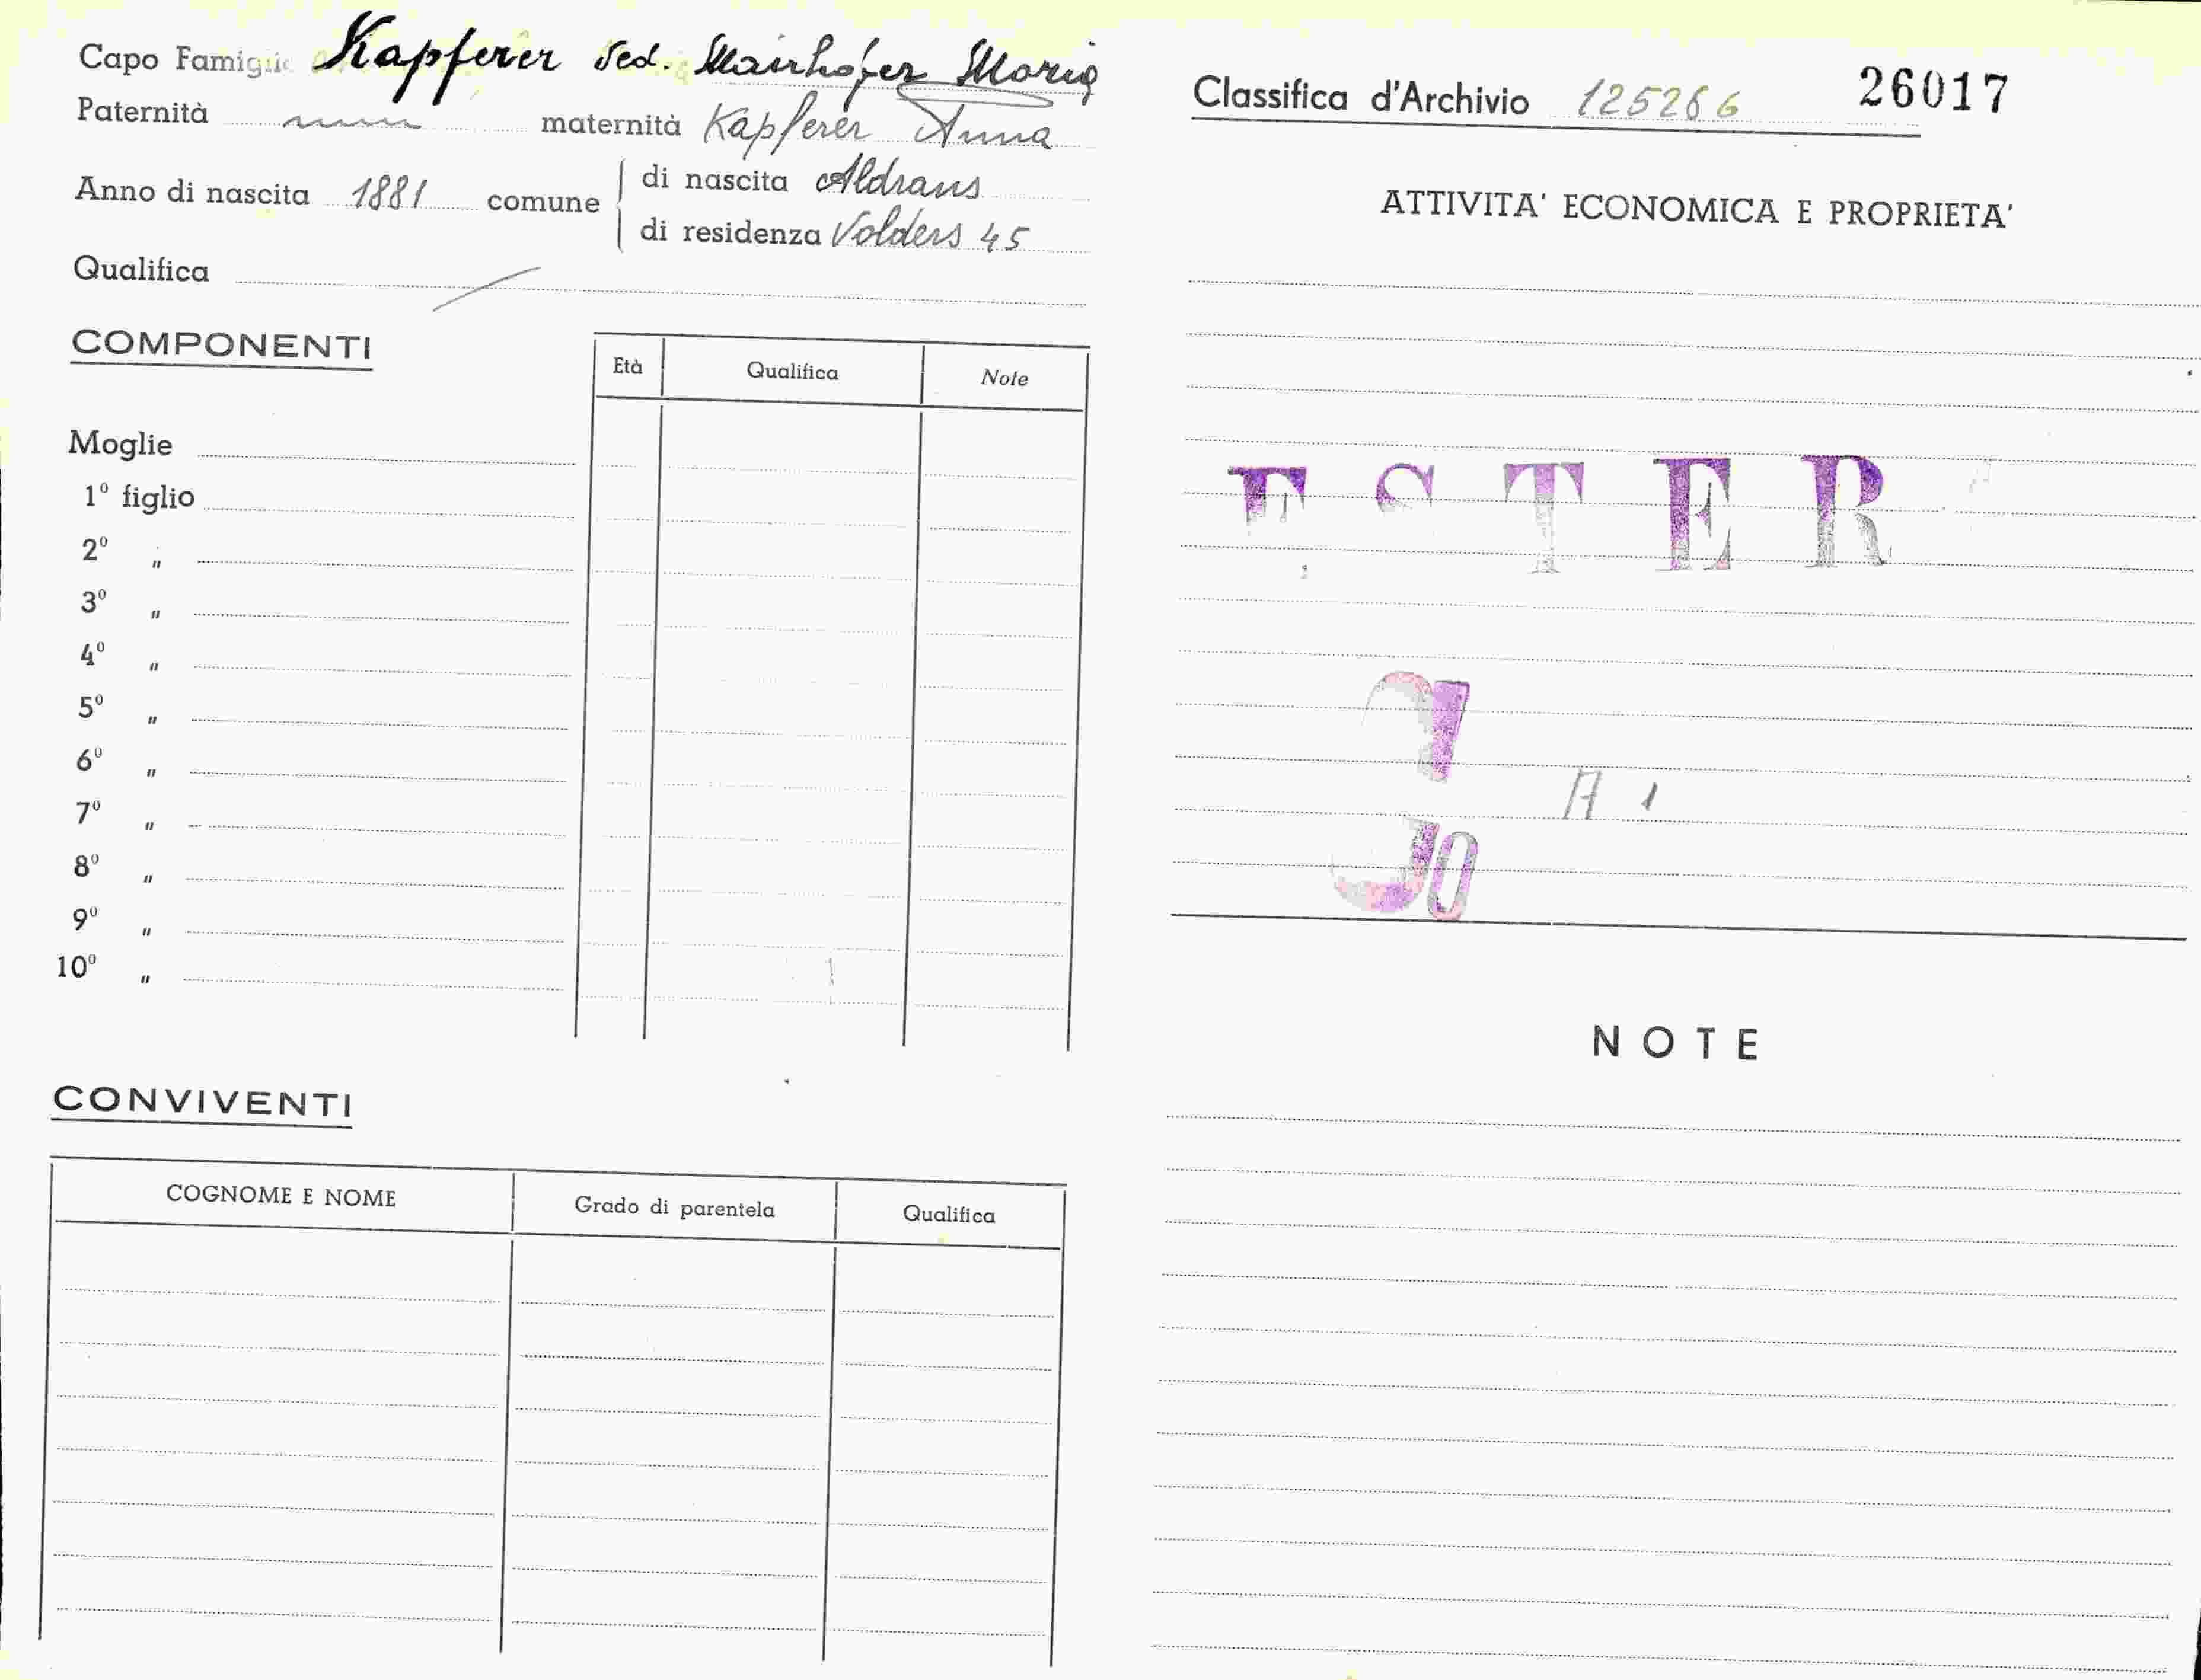 Capo Famiglia Kapferer ved. Mairhofer Maria
Paternità maternità Kapferer Anna
Anno di nascita 1881 comune
di nascita Aldrans
di residenza Volders 45
Qualifica /
COMPONENTI
Età Qualifica Note
Moglie
1º figlio
2º "
3º "
4º "
5º "
6º "
7º "
8º "
9º "
10º "
CONVIVENTI
COGNOME E NOME Grado di parentela Qualifica
Classifica d'Archivio 125266 26017
ATTIVITA' ECONOMICA E PROPRIETA'
ESTER
A 1
NOTE